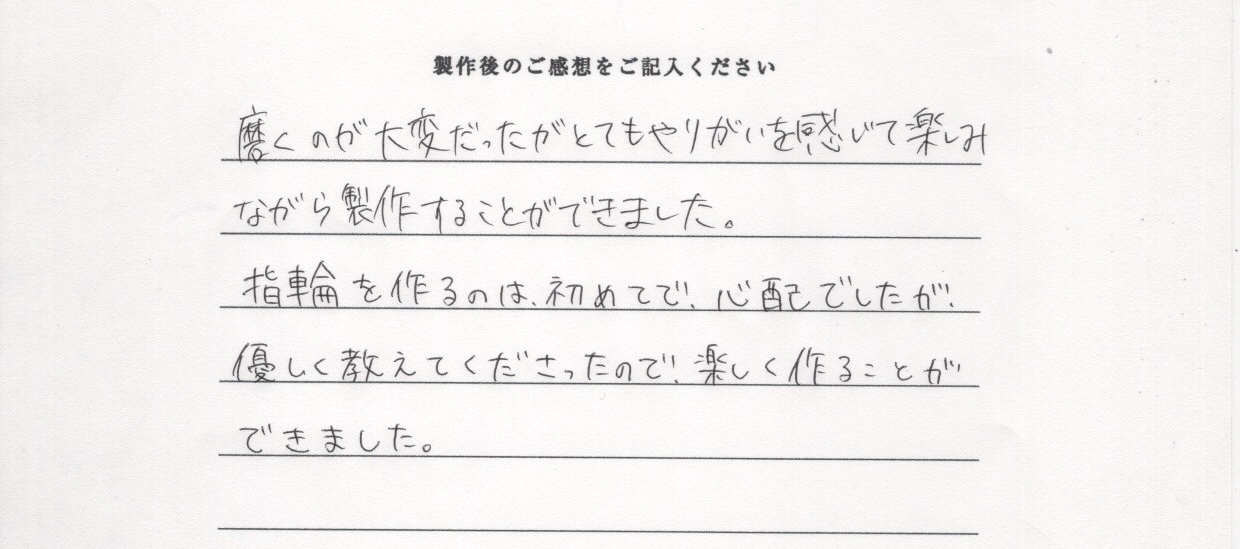 製作後のご感想をご記入ください
磨くのが大変だったがとてもやりがいを感じて楽しみ
ながら製作することができました。
指輪を作るのは、初めてで、心配でしたが、
優しく教えてくださったので、楽しく作ることが
できました。